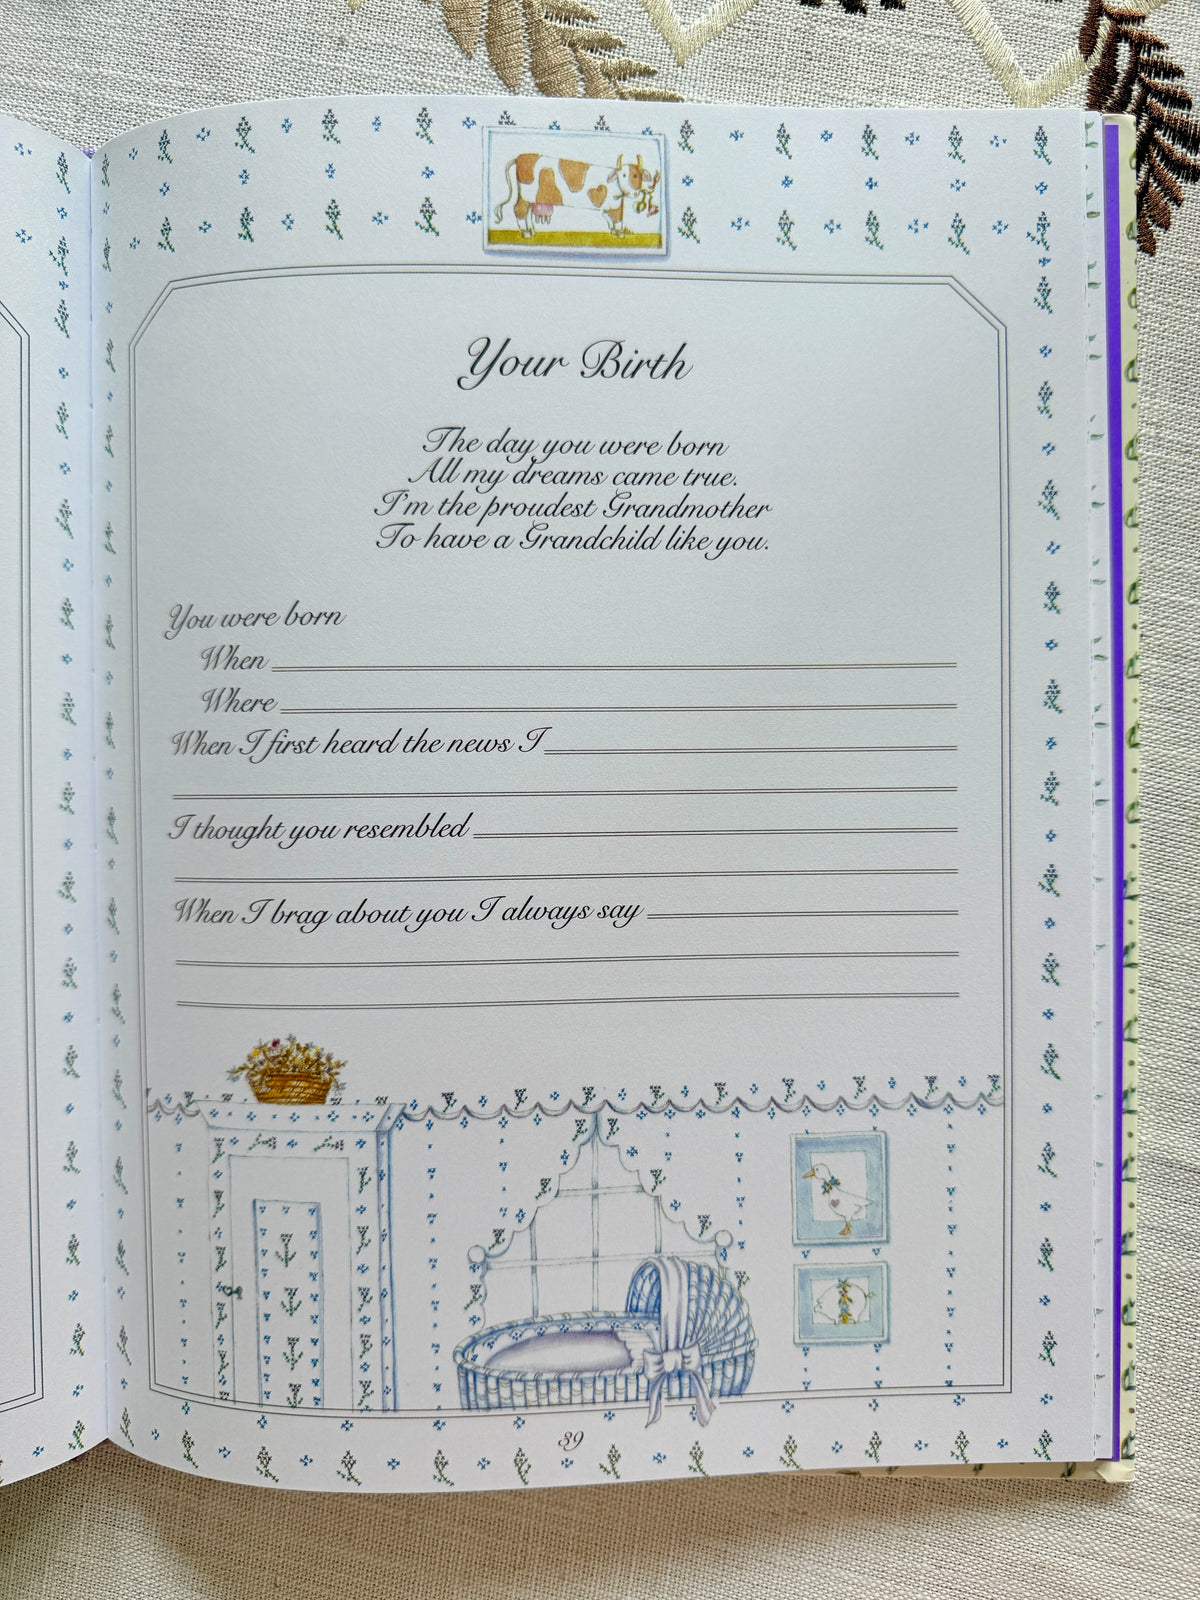 Your Birth
The day you were born
All my dreams came true.
I'm the proudest Grandmother
To have a Grandchild like you.
You were born
When
Where
When I first heard the news I
I thought you resembled
When I brag about you I always say
39